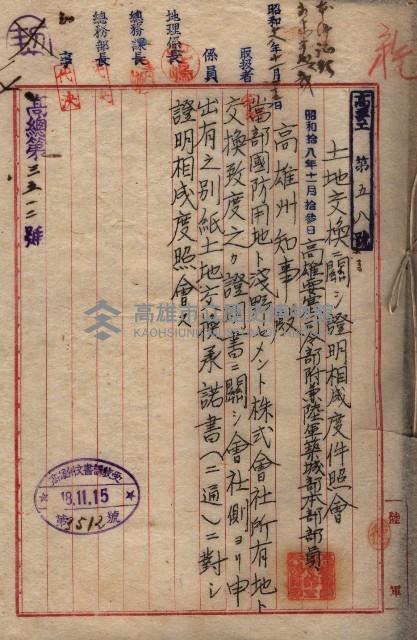 高要土 第五八號
土地交換ニ關シ證明相成度件照會
昭和拾八年十一月拾參日
高雄要塞司令部附兼陸軍築城部本部部員
高雄州知事殿
當部國防用地ト淺野セメント株式會社所有地ト
交換致度之カ證明書ニ關シ會社側ヨリ申
出有之別紙土地交換承諾書(二通)ニ對シ
證明相成度照會ス
昭和
取扱者
係員
地理係長
總務課長
總務部長
知事
代決
高總第三五一二號
高雄州文書課收受
18.11.15
第3512號
陸軍
高雄市立歷史博物館